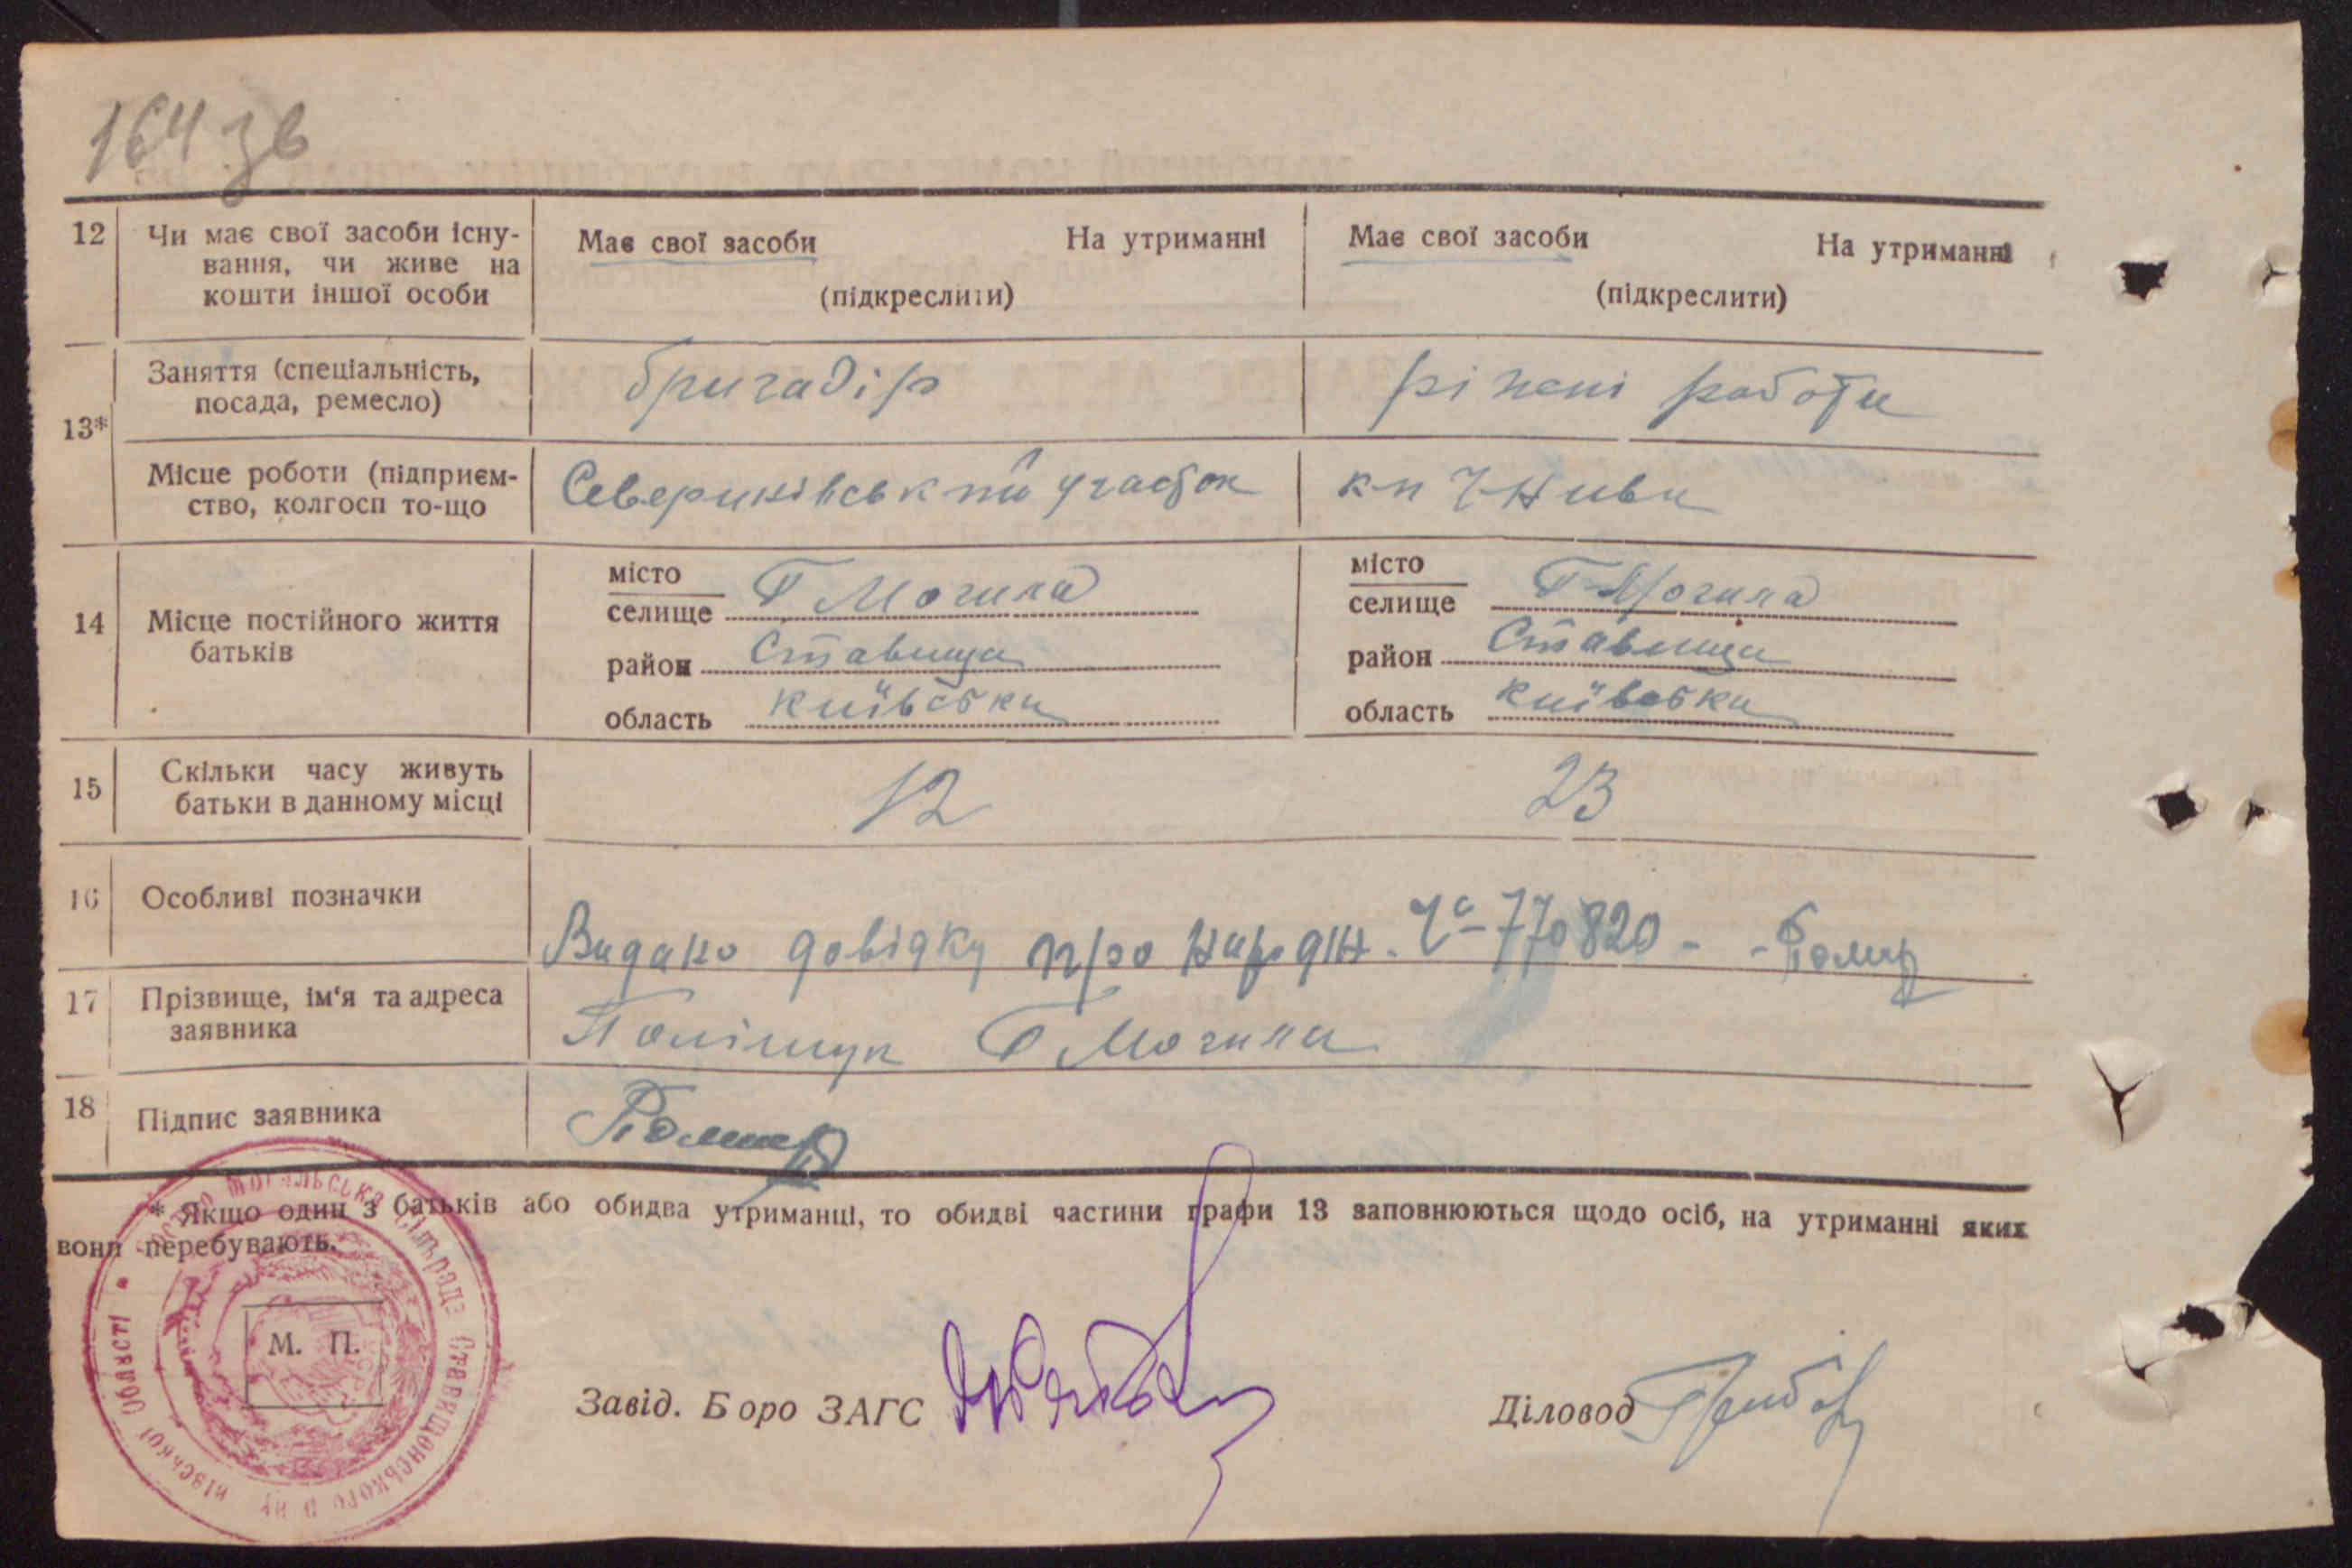 164 зв
12 Чи має свої засоби існу- Має свої засоби На утриманні Має свої засоби На утриманні
вання, чи живе на
кошти іншої особи (підкреслити) (підкреслити)
Заняття (спеціальність, бригадір ріжені работи
посада, ремесло)
13*
Місце роботи (підприєм- Северинівський участок к-п Ч Нива
ство, колгосп то-що
місто місто
селище Г Могила селище Г-Могила
14 Місце постійного життя
батьків район Ставища район Ставища
область київська область київська
15 Скільки часу живуть 12 23
батьки в данному місці
16 Особливі позначки
Видано довідку про народж. Ч 770820 -
17 Прізвище, ім'я та адреса Поліщук Г Могила
заявника
18 Підпис заявника
* Якщо один з батьків або обидва утриманці, то обидві частини графи 13 заповнюються щодо осіб, на утриманні яких
вони перебувають.
М. П.
Завід. Боро ЗАГС Діловод